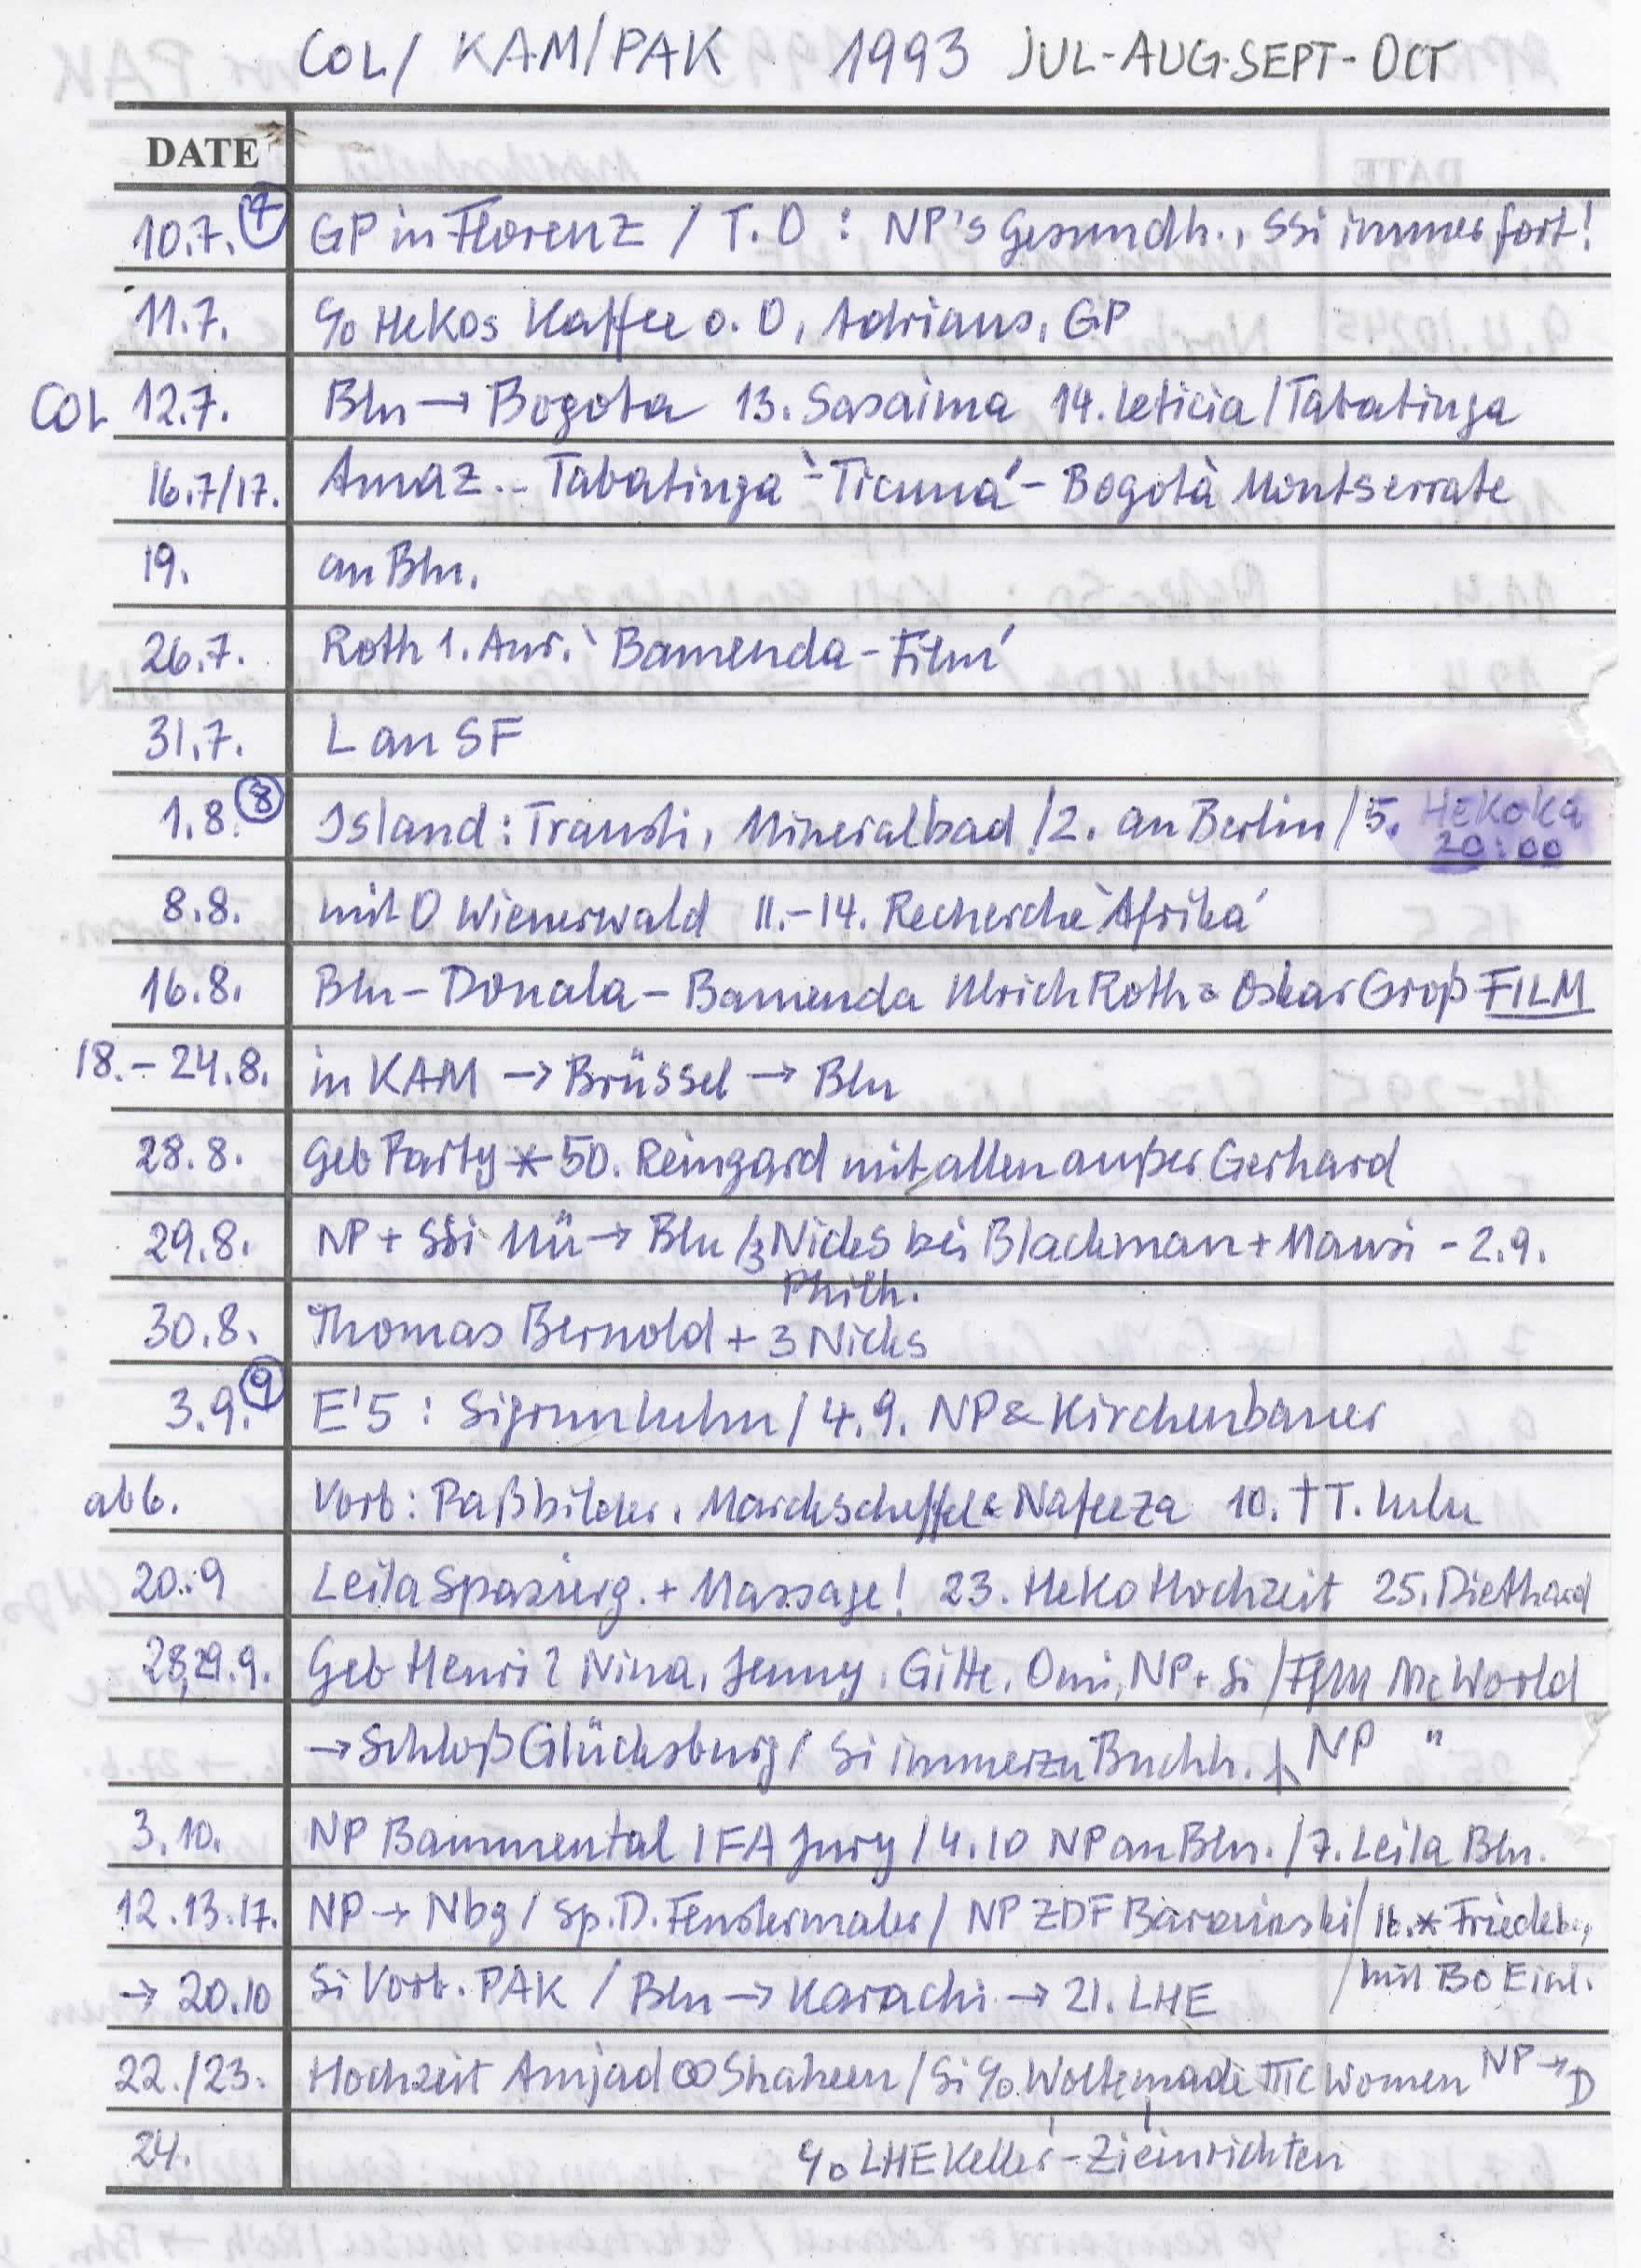 COL/ KAM/PAK 1993 JUL-AUG-SEPT-OCT
DATE
10.7. 7 GP in Florenz / T.O : NP's Gesundh., SSi immer fort!
11.7. c/o HeKos Kaffee o. O, Adrians, GP
COL 12.7. Bln → Bogota 13. Sasaima 14. Leticia/Tabatinga
16.7/17. Amaz.. Tabatinga `-Ticuna´- Bogotà Montserrate
19. an Bln.
26.7. Roth 1. Anr. `Bamenda-Film´
31.7. L an SF
1.8. 8 Island: Transli, Mineralbad /2. an Berlin /5. HeKoKa
20:00
8.8. mit O Wienerwald 11.-14. Recherche `Afrika´
16.8. Bln - Douala - Bamenda Ulrich Roth & Oskar Groß FILM
18.- 24.8. in KAM → Brüssel → Bln
28.8. Geb Party * 50. Reingard mit allen außer Gerhard
29.8. NP + SSi Mü → Bln /3 Nicks bei Blackman + Mausi - 2.9.
Philh.
30.8. Thomas Bernold + 3 Nicks
3.9. 9 E'5 : Sigrun Luhn / 4.9. NP & Kirchenbauer
ab 6. Vorb: Paßbilder. Marckscheffel & Nafeeza 10. † T. Lulu
20..9 Leila Spazierg. + Massage! 23. HeKo Hochzeit 25. Diethard
28,29.9. Geb Henri 2 Nina, Jenny, Gitte, Omi, NP + Si / Ffm Mc World
→ Schloß Glücksburg / Si immerzu Buchh. NP "
3.10. NP Bammental IFA Jury / 4.10 NP an Bln. /7. Leila Bln.
12.13.17. NP → Nbg / Sp. D. Fenstermaler / NP ZDF Baranowski / 16.* Friedeb.,
→ 20.10 Si Vorb. PAK / Bln → Karachi → 21. LHE / mit BO Einl.
22./23. Hochzeit Amjad ∞ Shaheen / Si c/o Woltemade Women NP → D
24. c/o LHE Keller-Zi einrichten